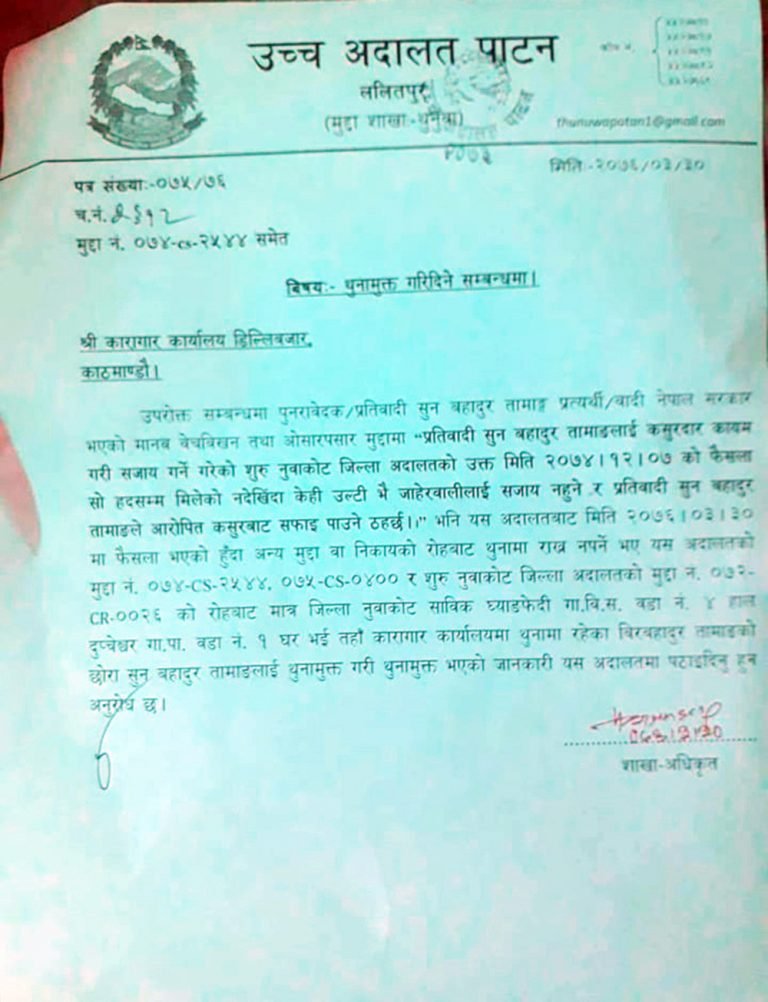 उच्च अदालत पाटन
ललितपुर
(मुद्दा शाखा-थुनुवा)
फोन नं.
thunuwapatan1@gmail.com
मिति:-२०७६/०३/३०
पत्र संख्या:-०७५/७६
च.नं.
मुद्दा नं. ०७४-cs-२५४४ समेत
विषय:- थुनामुक्त गरिदिने सम्बन्धमा।
श्री कारागार कार्यालय डिल्लिबजार,
काठमाण्डौ।
उपरोक्त सम्बन्धमा पुनरावेदक/प्रतिवादी सुन बहादुर तामाङ्ग प्रत्यर्थी/वादी नेपाल सरकार
भएको मानव बेचबिखन तथा ओसारपसार मुद्दामा "प्रतिवादी सुन बहादुर तामाङलाई कसुरदार कायम
गरी सजाय गर्ने गरेको शुरु नुवाकोट जिल्ला अदालतको उक्त मिति २०७४।१२।०७ को फैसला
सो हदसम्म मिलेको नदेखिंदा केही उल्टी भै जाहेरवालीलाई सजाय नहुने र प्रतिवादी सुन बहादुर
तामाङले आरोपित कसुरबाट सफाइ पाउने ठहर्छ।।" भनि यस अदालतबाट मिति २०७६।०३।३०
मा फैसला भएको हुँदा अन्य मुद्दा वा निकायको रोहबाट थुनामा राख्न नपर्ने भए यस अदालतको
मुद्दा नं. ०७४-CS-२५४४, ०७५-CS-०४०० र शुरु नुवाकोट जिल्ला अदालतको मुद्दा नं. ०७२-
CR-००२६ को रोहबाट मात्र जिल्ला नुवाकोट साविक घ्याङफेदी गा.वि.स. वडा नं. ४ हाल
दुप्चेश्वर गा.पा. वडा नं. १ घर भई तहाँ कारागार कार्यालयमा थुनामा रहेका बिरबहादुर तामाङको
छोरा सुन बहादुर तामाङलाई थुनामुक्त गरी थुनामुक्त भएको जानकारी यस अदालतमा पठाइदिनु हुन
अनुरोध छ।
शाखा-अधिकृत